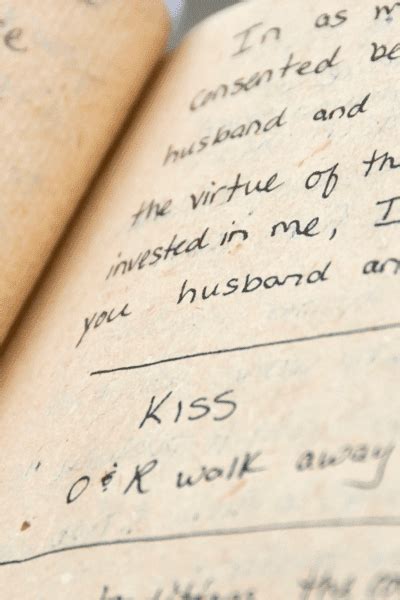 In as
consented be
husband and
the virtue of th
invested in me, I
you husband an
KISS
O & R walk away
the co